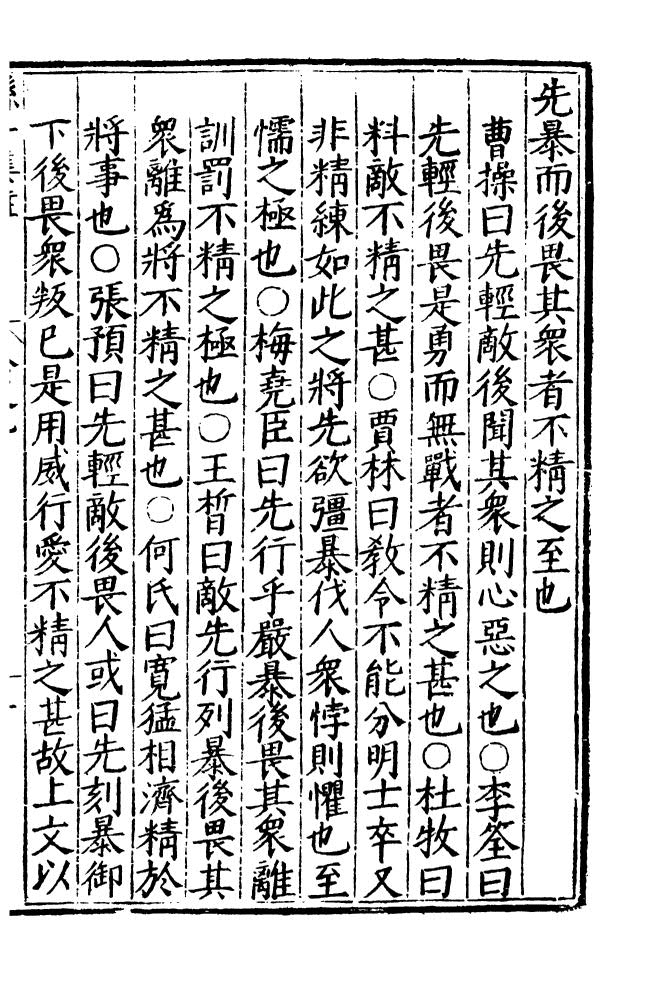 先暴而後畏其衆者不精之至也
曹操曰先輕敵後聞其衆則心惡之也○李筌曰
先輕後畏是勇而無戰者不精之甚也○杜牧曰
料敵不精之甚○賈林曰敎令不能分明士卒又
非精練如此之將先欲彊暴伐人衆悖則懼也至
懦之極也○梅堯臣曰先行乎嚴暴後畏其衆離
訓罰不精之極也○王晳曰敵先行列暴後畏其
衆離爲將不精之甚也○何氏曰寛猛相濟精於
將事也○張預曰先輕敵後畏人或曰先刻暴御
下後畏衆叛已是用威行愛不精之甚故上文以